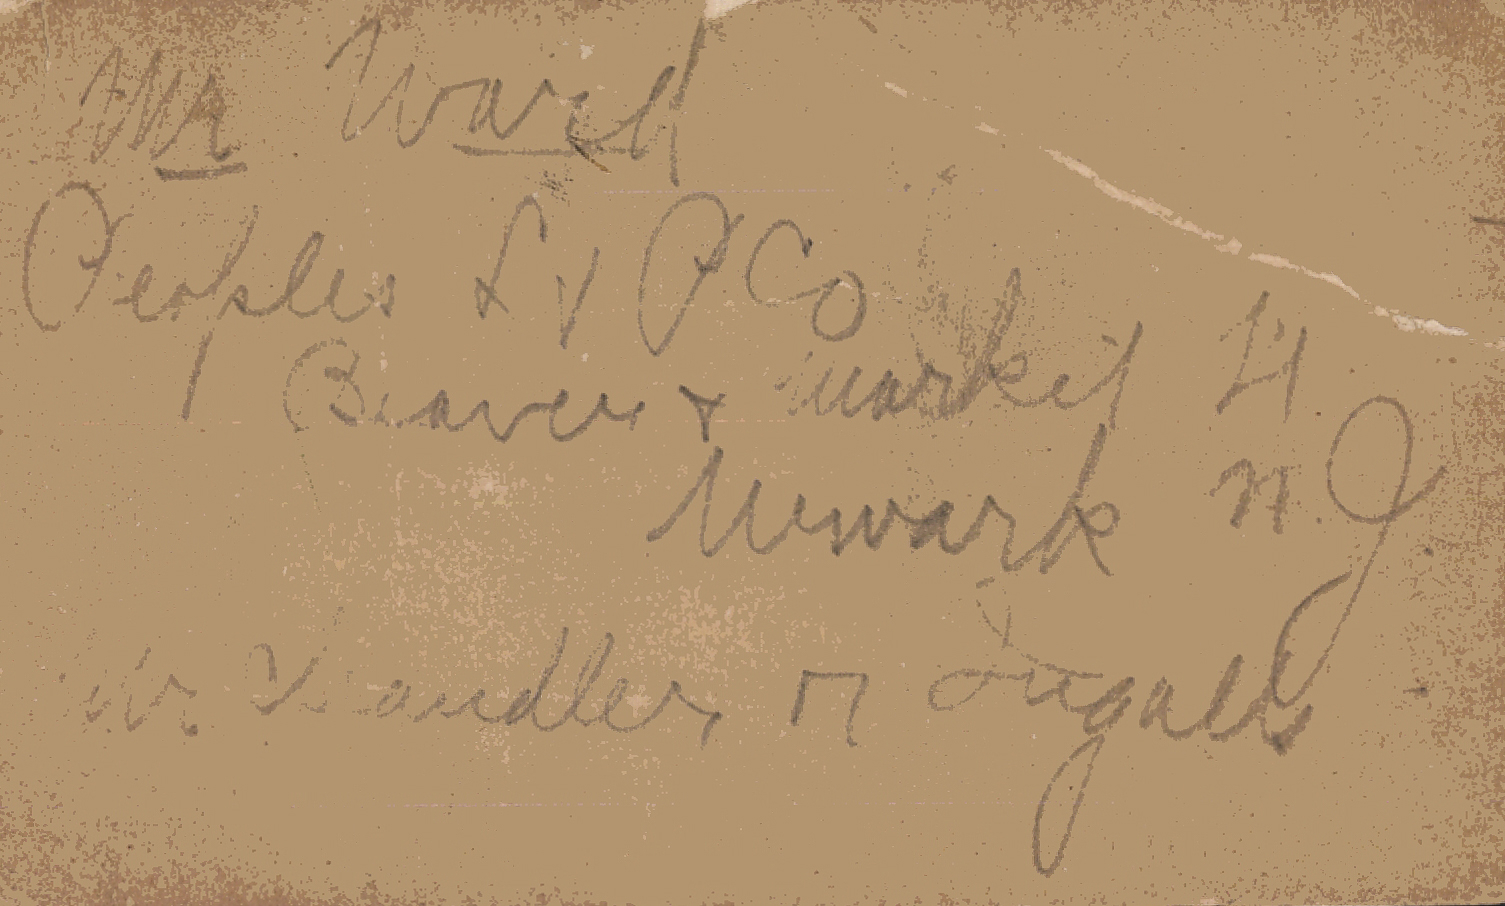 Mr Ward
Peoples L & P Co
Beaver & Market St
Newark N.J.
Mr Chandler or Ingalls